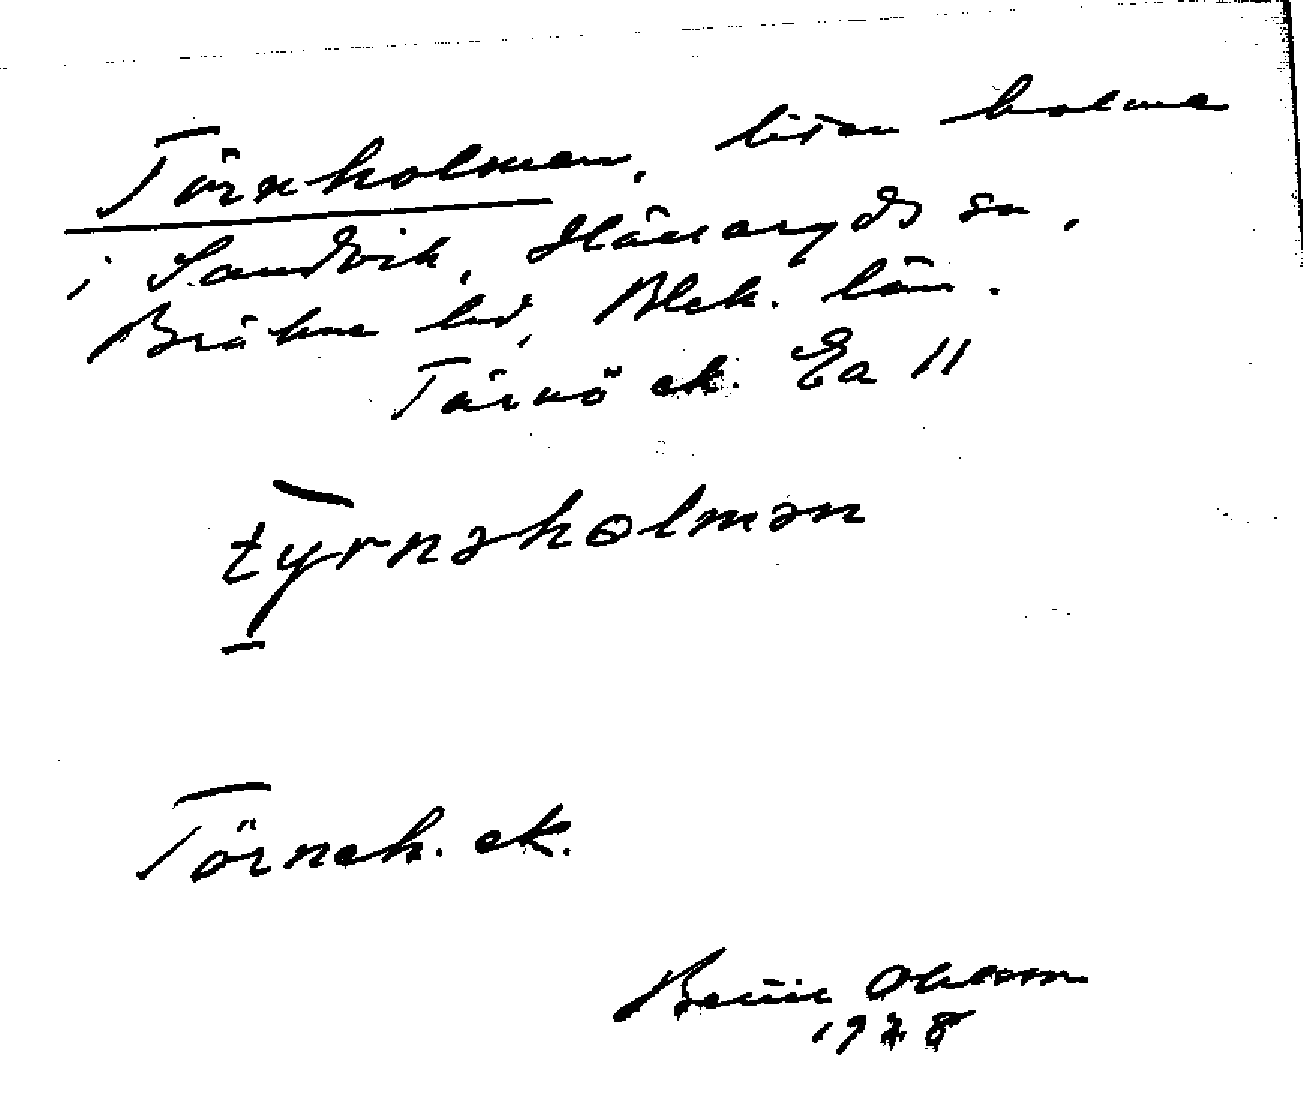 Törnholmen, liten holme
i Sandvik, Hällaryds sn,
Bräkne hd, Blek. län.
Tärnö ek. Ea 11
tyrnəholmən
Törneh. ek.
Bertil Ohlsson
1928